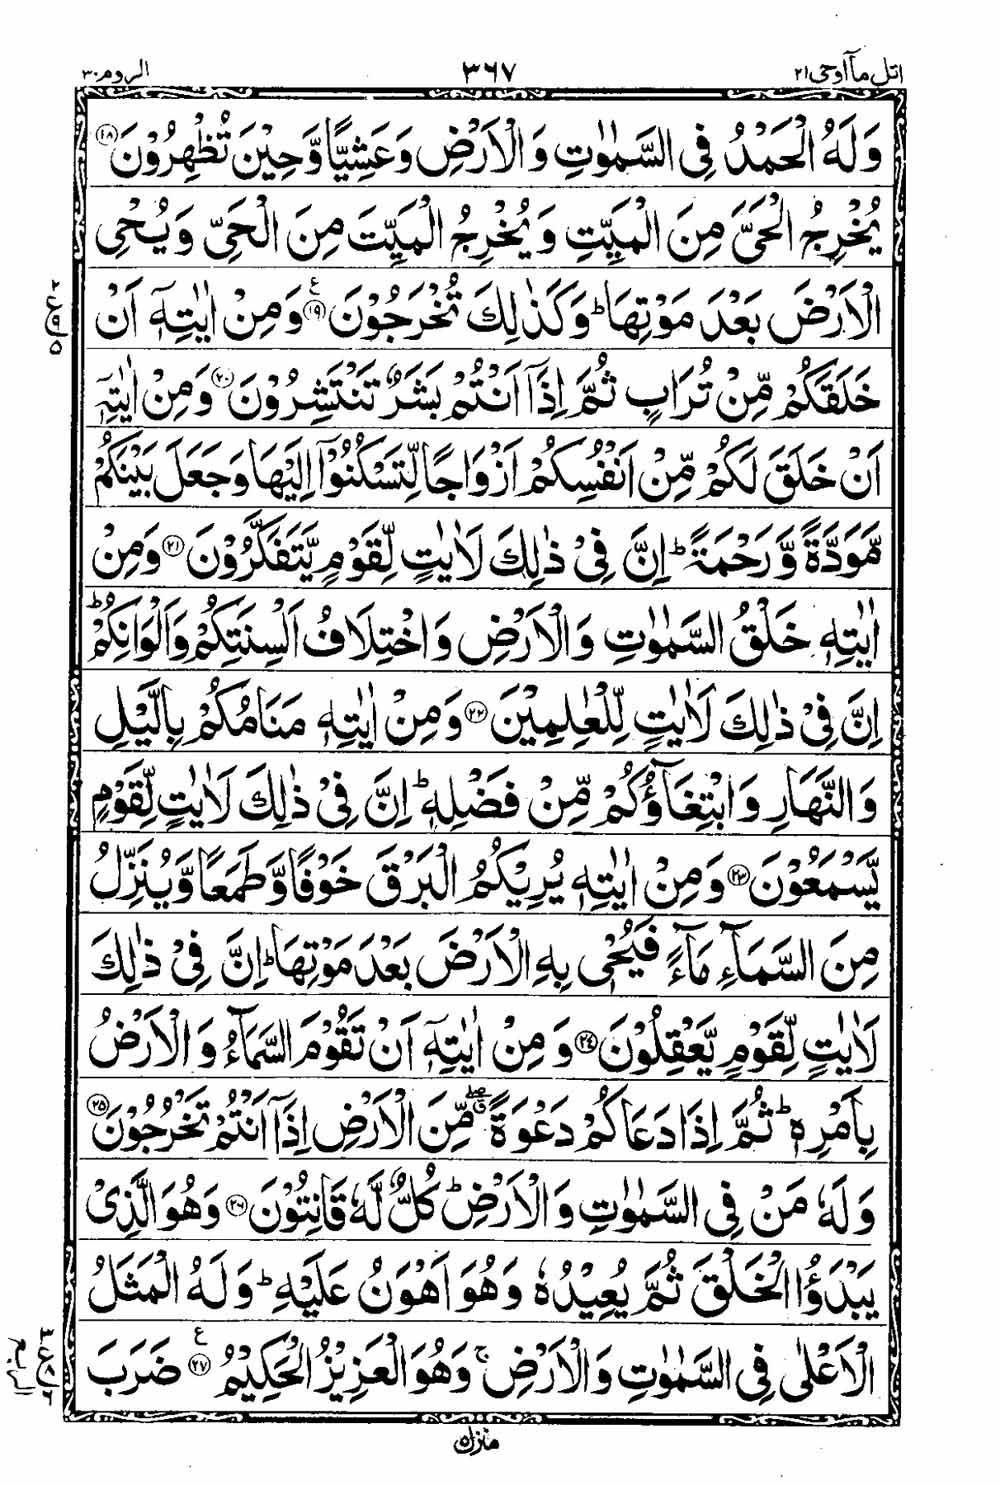 اتل ما اوحی ۲۱ ۳۶۷ الروم ۳۰
وَلَهُ الْحَمْدُ فِی السَّمٰوٰتِ وَ الْاَرْضِ وَ عَشِیًّا وَّ حِیْنَ تُظْهِرُوْنَ ۱۸
یُخْرِجُ الْحَیَّ مِنَ الْمَیِّتِ وَ یُخْرِجُ الْمَیِّتَ مِنَ الْحَیِّ وَ یُحْیِ
الْاَرْضَ بَعْدَ مَوْتِهَا ؕ وَ كَذٰلِكَ تُخْرَجُوْنَ ۱۹ ع وَ مِنْ اٰیٰتِهٖۤ اَنْ
خَلَقَكُمْ مِّنْ تُرَابٍ ثُمَّ اِذَاۤ اَنْتُمْ بَشَرٌ تَنْتَشِرُوْنَ ۲۰ وَ مِنْ اٰیٰتِهٖۤ
اَنْ خَلَقَ لَكُمْ مِّنْ اَنْفُسِكُمْ اَزْوَاجًا لِّتَسْكُنُوْۤا اِلَیْهَا وَ جَعَلَ بَیْنَكُمْ
مَّوَدَّةً وَّ رَحْمَةً ؕ اِنَّ فِیْ ذٰلِكَ لَاٰیٰتٍ لِّقَوْمٍ یَّتَفَكَّرُوْنَ ۲۱ وَ مِنْ
اٰیٰتِهٖ خَلْقُ السَّمٰوٰتِ وَ الْاَرْضِ وَ اخْتِلَافُ اَلْسِنَتِكُمْ وَ اَلْوَانِكُمْ ؕ
اِنَّ فِیْ ذٰلِكَ لَاٰیٰتٍ لِّلْعٰلِمِیْنَ ۲۲ وَ مِنْ اٰیٰتِهٖ مَنَامُكُمْ بِالَّیْلِ
وَ النَّهَارِ وَ ابْتِغَآؤُكُمْ مِّنْ فَضْلِهٖ ؕ اِنَّ فِیْ ذٰلِكَ لَاٰیٰتٍ لِّقَوْمٍ
یَّسْمَعُوْنَ ۲۳ وَ مِنْ اٰیٰتِهٖ یُرِیْكُمُ الْبَرْقَ خَوْفًا وَّ طَمَعًا وَّ یُنَزِّلُ
مِنَ السَّمَآءِ مَآءً فَیُحْیٖ بِهِ الْاَرْضَ بَعْدَ مَوْتِهَا ؕ اِنَّ فِیْ ذٰلِكَ
لَاٰیٰتٍ لِّقَوْمٍ یَّعْقِلُوْنَ ۲۴ وَ مِنْ اٰیٰتِهٖۤ اَنْ تَقُوْمَ السَّمَآءُ وَ الْاَرْضُ
بِاَمْرِهٖ ؕ ثُمَّ اِذَا دَعَاكُمْ دَعْوَةً ۖۗ مِّنَ الْاَرْضِ اِذَاۤ اَنْتُمْ تَخْرُجُوْنَ ۲۵
وَ لَهٗ مَنْ فِی السَّمٰوٰتِ وَ الْاَرْضِ ؕ كُلٌّ لَّهٗ قَانِتُوْنَ ۲۶ وَ هُوَ الَّذِیْ
یَبْدَؤُا الْخَلْقَ ثُمَّ یُعِیْدُهٗ وَ هُوَ اَهْوَنُ عَلَیْهِ ؕ وَ لَهُ الْمَثَلُ
الْاَعْلٰی فِی السَّمٰوٰتِ وَ الْاَرْضِ ۚ وَ هُوَ الْعَزِیْزُ الْحَكِیْمُ ۲۷ ع ضَرَبَ
منزل ۵